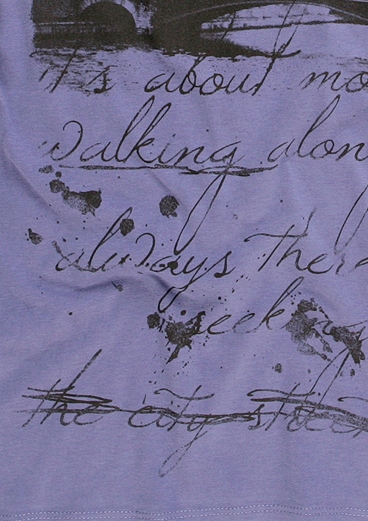 it's about mo
Walking alon
always there
seek
the city street